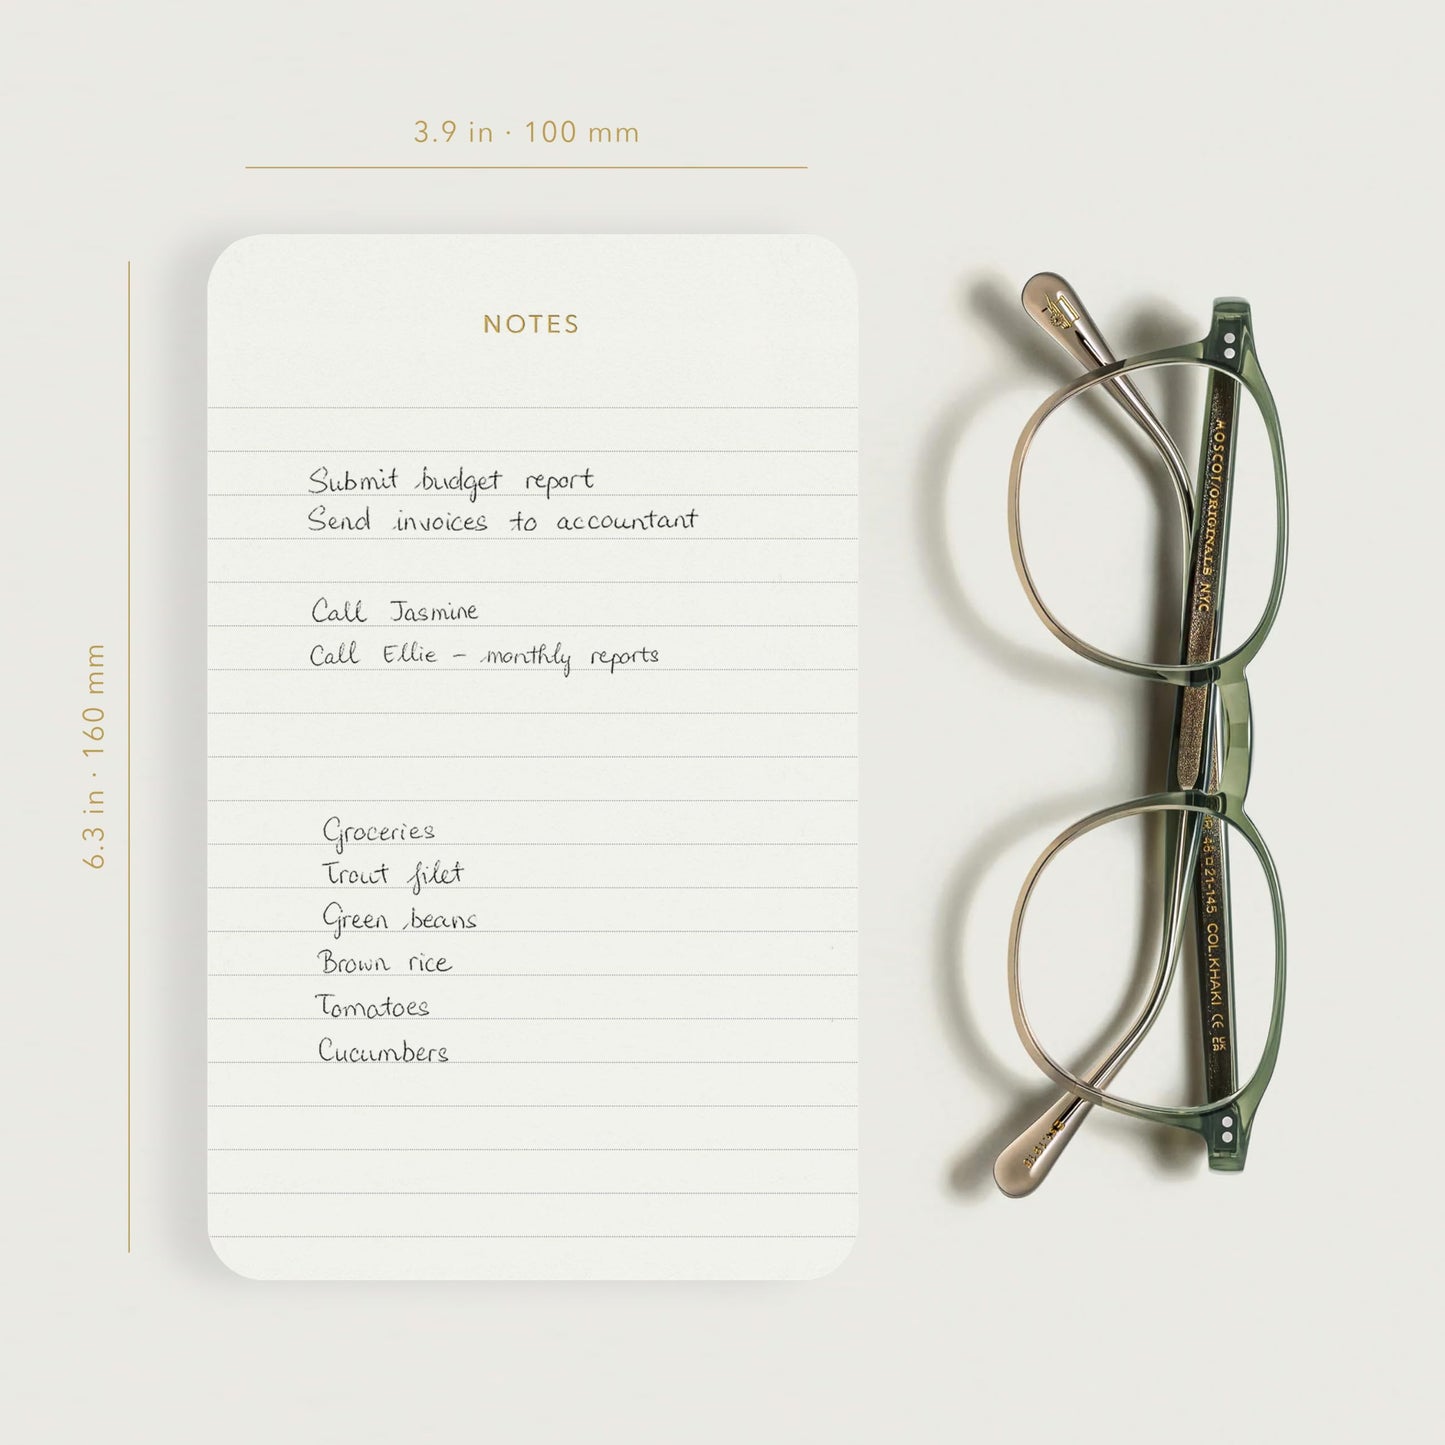 3.9 in · 100 mm
6.3 in · 160 mm
NOTES
Submit budget report
Send invoices to accountant
Call Jasmine
Call Ellie – monthly reports
Groceries
Trout filet
Green beans
Brown rice
Tomatoes
Cucumbers
MOSCOT ORIGINALS NYC
48 □ 21-145 COL. KHAKI CE UK CA